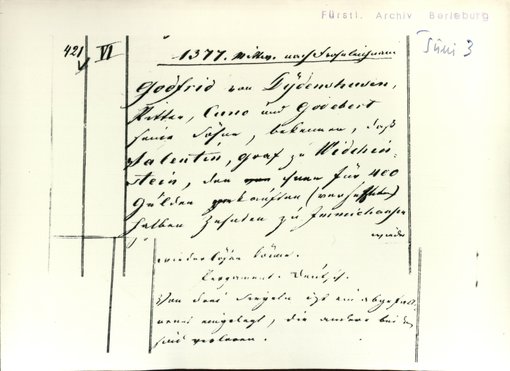 Fürstl. Archiv Berleburg
Juni 3
421 VI
1377. Mittw. nach Frohnleichnam
Godfrid von Dydenshusen,
Ritter, Cuno und Godebert
seine Söhne, bekennen, daß
Valentin, Graf zu Widchin-
stein, den von ihnen für 400
Gülden verkauften (versetzten)
halben Zehnten zu Immichusen
wieder
wiederlösen könne.
Pergament. Deutsch.
Von drei Siegeln ist ein abgefall-
enes eingelegt, die andere beiden
sind verloren.